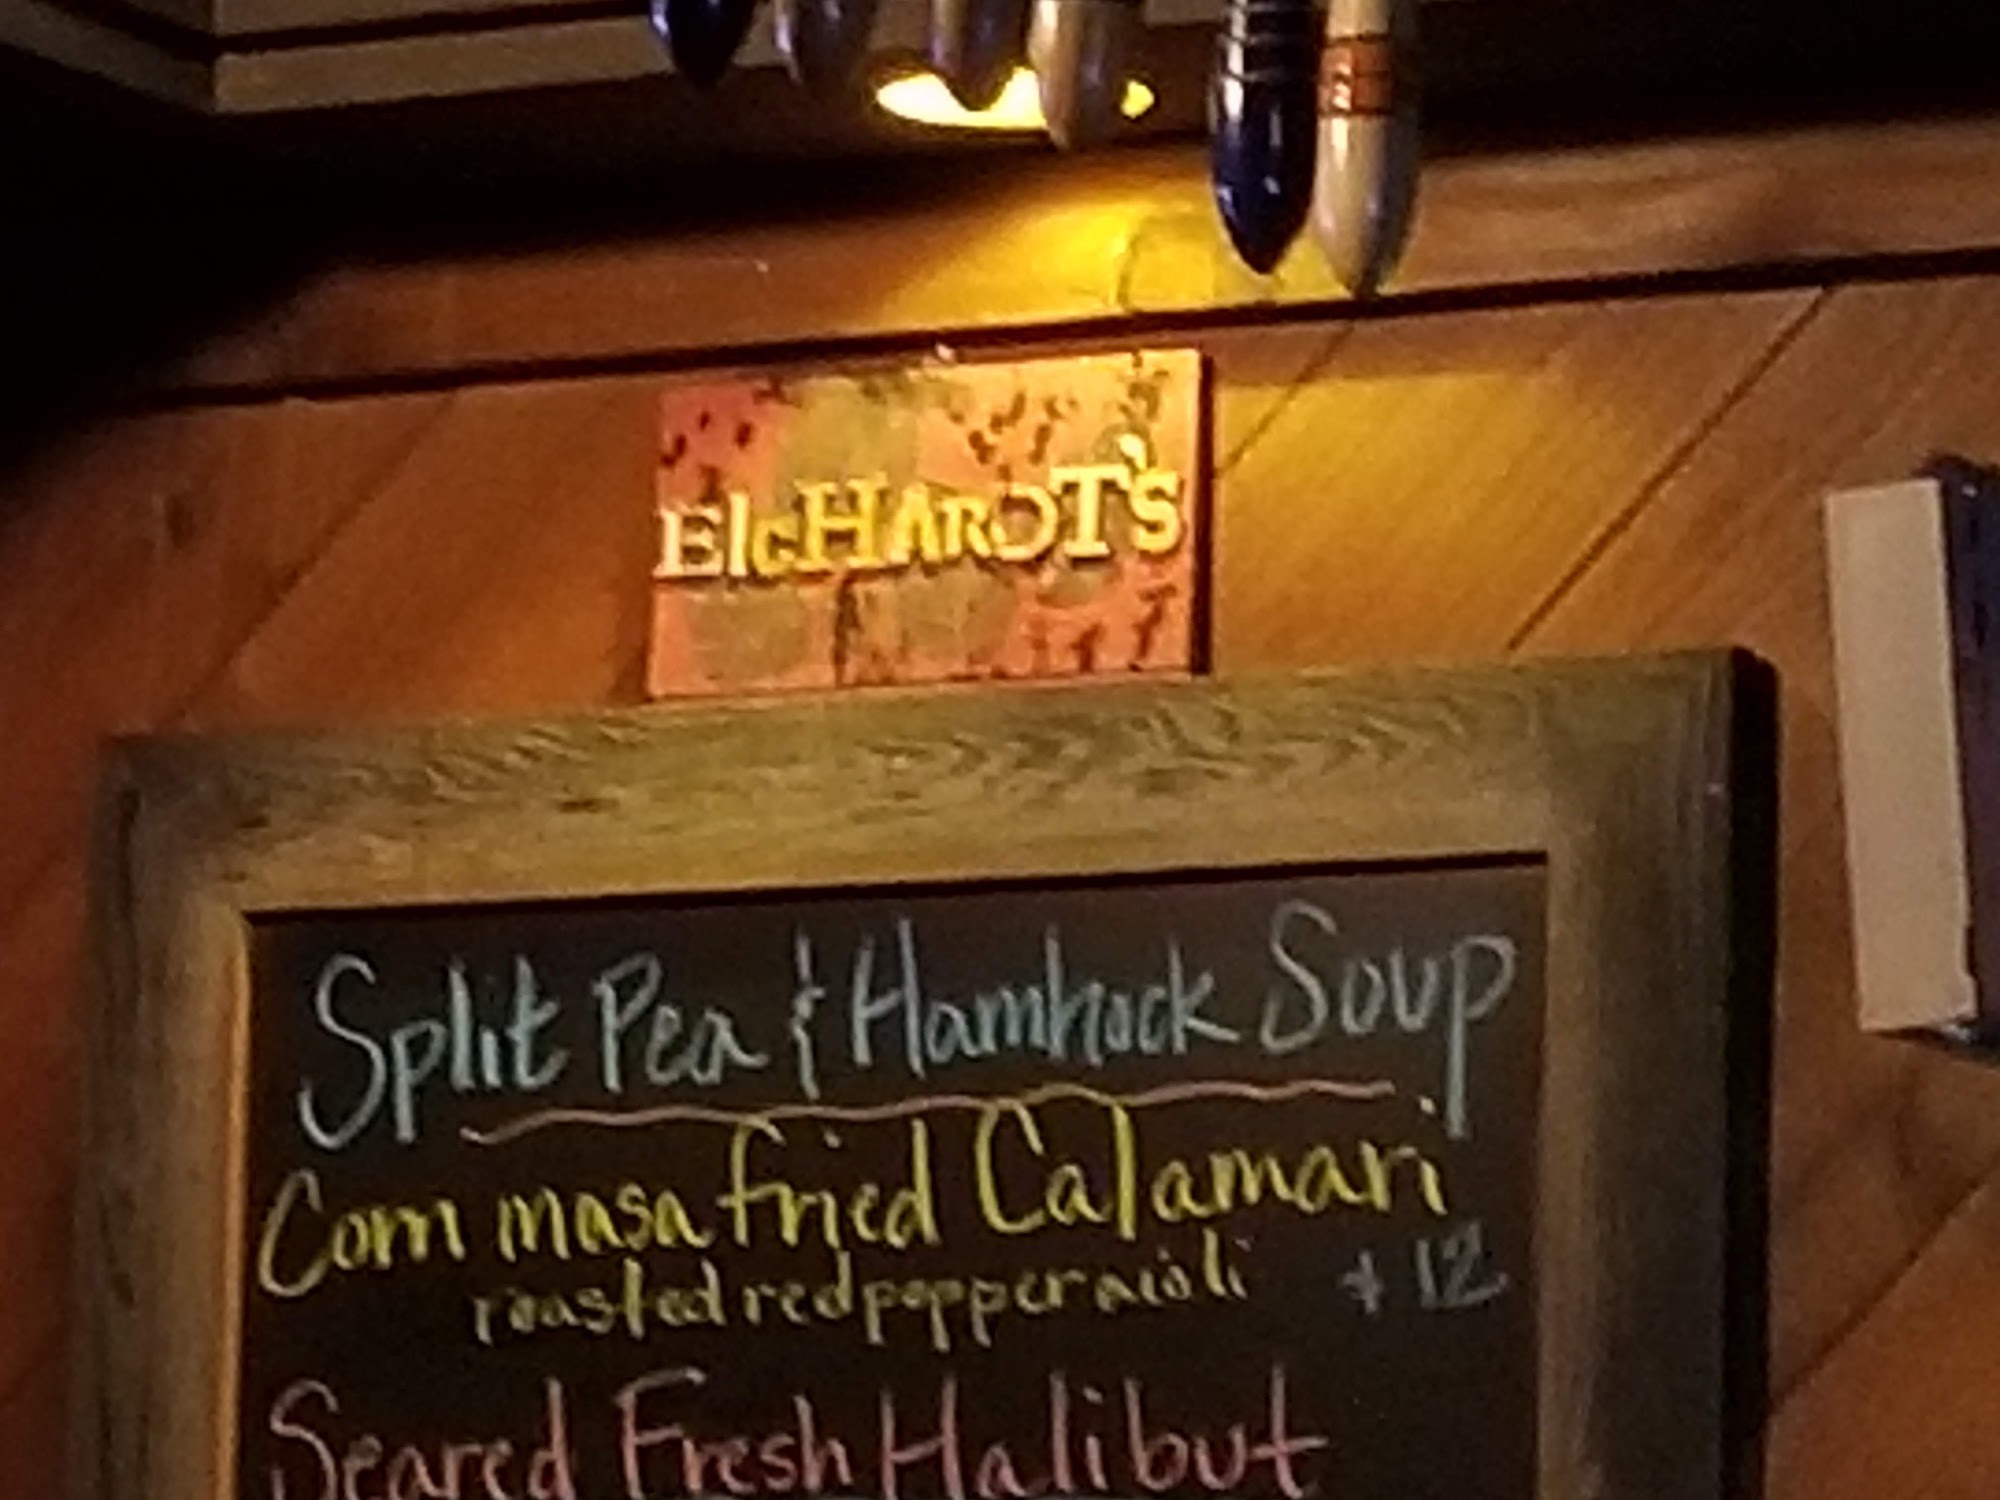 ElcHAROT'S
Split Pea & Hamhock Soup
Corn masa fried Calamari
roasted red pepper aioli +12
Seared Fresh Halibut